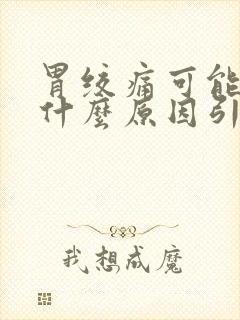 胃绞痛可能
什麼原因引
我想成魔